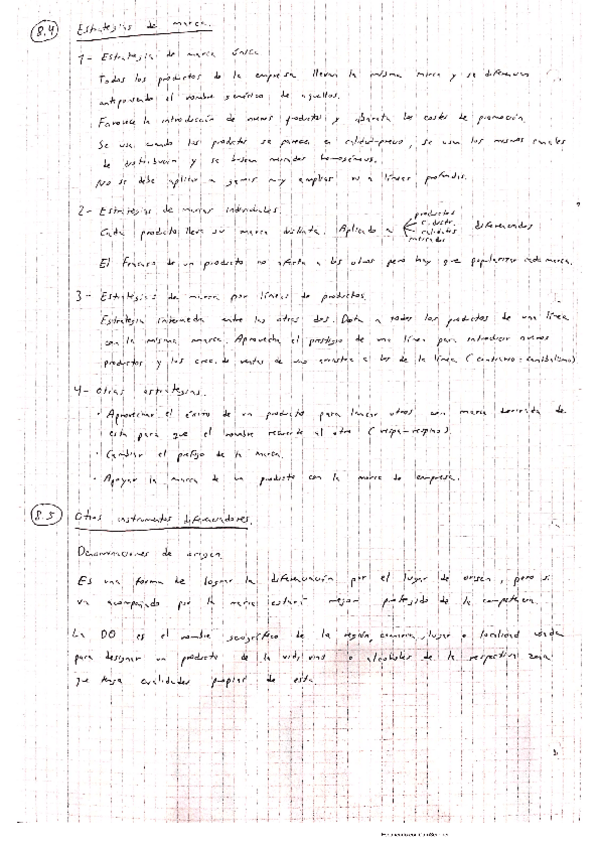 8.4 Estrategias de marca.
1- Estrategia de marca única
Todos los productos de la empresa llevan la misma marca y se diferencian
anteponiendo el nombre genérico de aquellos.
Favorece la introducción de nuevos productos y abarata los costes de promoción.
Se usa cuando los productos se parecen en calidad-precio, se usan los mismos canales
de distribución y se buscan mercados homogéneos.
No se debe aplicar a gamas muy amplias ni a líneas profundas.
2- Estrategias de marcas individuales.
Cada producto lleva su marca distinta. Aplicado a productos c. distr. calidades mercados diferenciados
El fracaso de un producto no afecta a los otros pero hay que popularizar cada marca.
3- Estrategias de marca por líneas de productos.
Estrategia intermedia entre las otras dos. Dota a todos los productos de una línea
con la misma marca. Aprovecha el prestigio de una línea para introducir nuevos
productos y los crec. de ventas de uno arrastra a los de la línea (contrario: canibalismo)
4- Otras estrategias.
· Aprovechar el éxito de un producto para lanzar otros con marca derivada de
esta para que el nombre recuerde al otro
· Cambiar el prefijo de la marca.
· Apoyar la marca de un producto con la marca de empresa.
8.5 Otros instrumentos diferenciadores.
Denominaciones de origen
Es una forma de lograr la diferenciación por el lugar de origen, pero si
va acompañado por la marca estará mejor protegido de la competencia.
La DO es el nombre geográfico de la región, comarca, lugar o localidad usada
para designar un producto de la vid, vino o alcoholes de la respectiva zona
que tenga cualidades propias de esta.